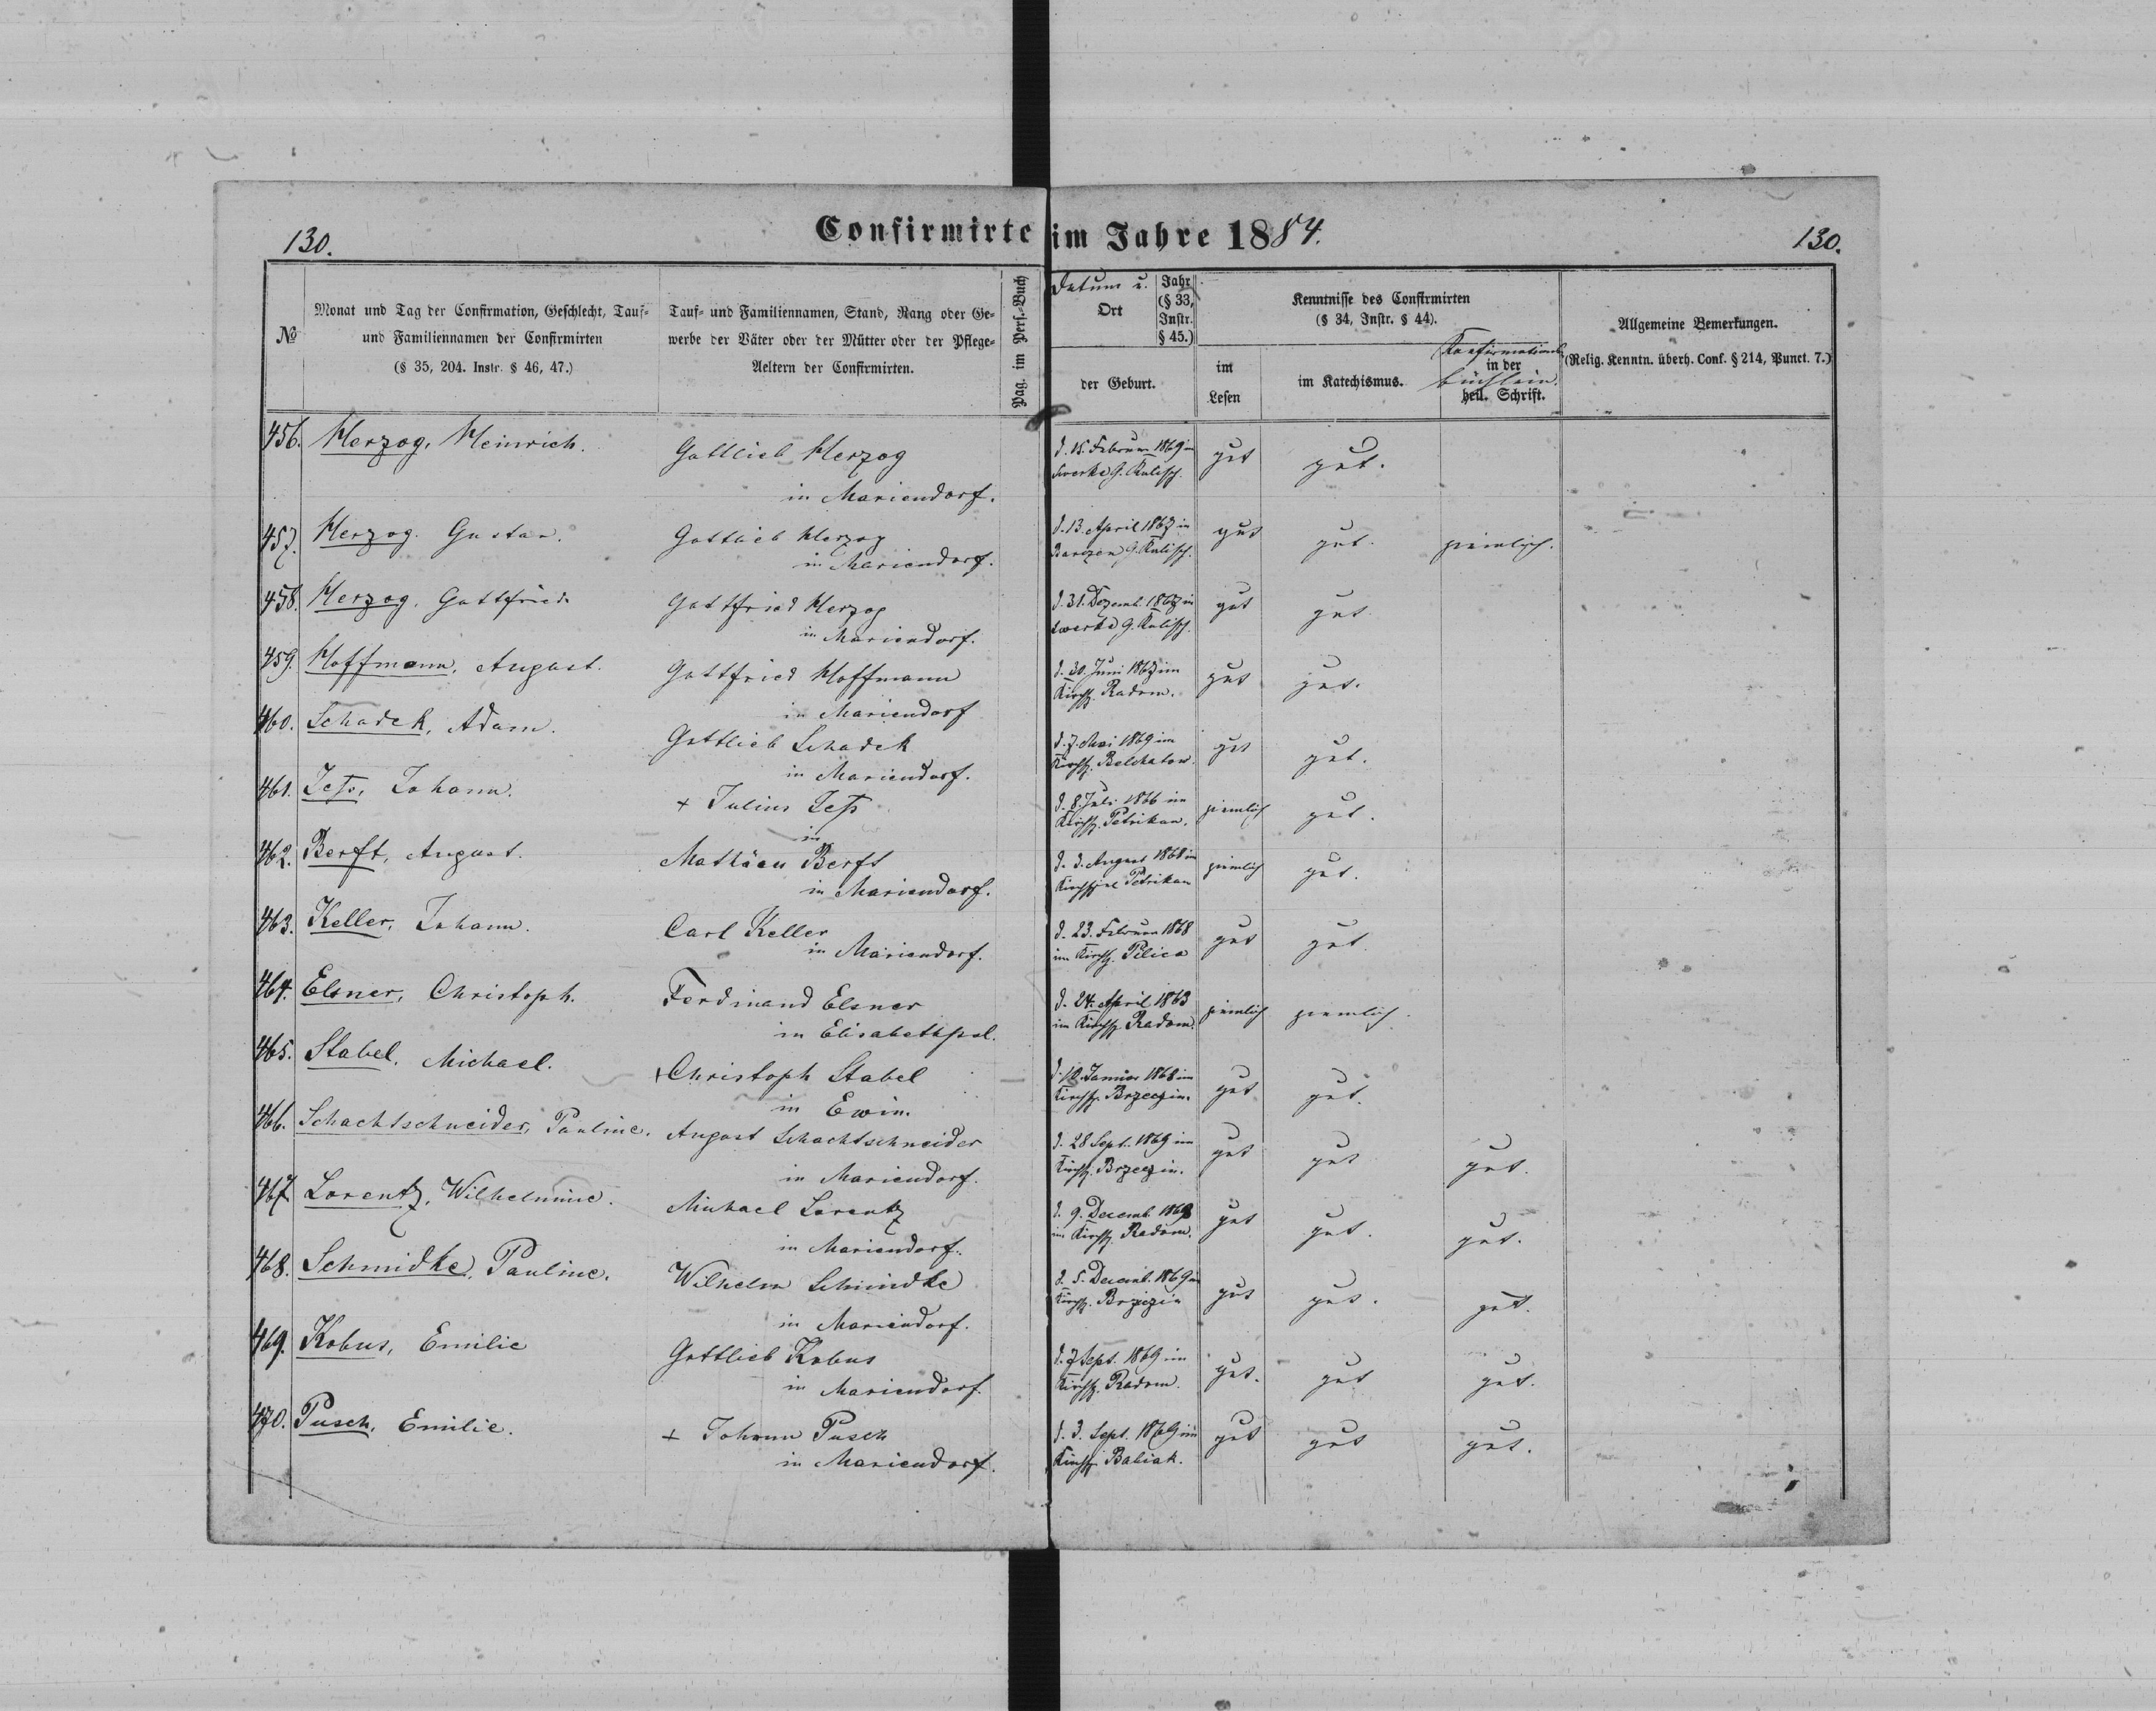 130.
Confirmirte im Jahre 1884.
130.
№
Monat und Tag der Confirmation, Geschlecht, Tauf-
und Familiennamen der Confirmirten
(§ 35, 204. Instr. § 46, 47.)
Tauf- und Familiennamen, Stand, Rang oder Ge-
werbe der Väter oder der Mütter oder der Pflege-
Aeltern der Confirmirten.
Pag. im Pers.-Buch
Datum u.
Ort
Jahr
(§ 33,
Instr.
§ 45.)
der Geburt.
Kenntnisse des Confirmirten
(§ 34, Instr. § 44).
im
Lesen
im Katechismus.
Konfirmations
in der
büchlein.
heil. Schrift.
Allgemeine Bemerkungen.
(Relig. Kenntn. überh. Conf. § 214, Punct. 7.)
456. Herzog, Heinrich. Gottlieb Herzog d. 15. Februar 1869 in gut gut.
in Mariendorf. G. Kalisch.
457. Herzog. Gustav. Gottlieb Herzog d. 13. April 1867 in gut gut. ziemlich.
in Mariendorf. G. Kalisch.
458. Herzog, Gottfried. Gottfried Herzog d. 31. Dezemb. 1867 in gut gut.
in Mariendorf. G. Kalisch.
459. Hoffmann, August. Gottfried Hoffmann d. 30. Juni 1867 im gut gut.
in Mariendorf Kirchsp. Radom.
460. Schadek, Adam. Gottlieb Schadek d. 7. Mai 1869 im gut gut.
in Mariendorf. Kirchsp. Belchatow.
461. Jess, Johann. + Julius Jess d. 8. Juli 1866 im ziemlich gut.
in Kirchsp. Petrikau.
462. Berft, August. Mathäeu Berft d. 3. August 1868 im ziemlich gut.
in Mariendorf. Kirchspiel Petrikau
463. Keller, Johann. Carl Keller d. 23. Februar 1868 gut gut.
in Mariendorf. im Kirchsp. Pilica
464. Elsner, Christoph. Ferdinand Elsner d. 24. April 1863 ziemlich ziemlich.
in Elisabethpol. im Kirchsp. Radom.
465. Stabel, Michael. + Christoph Stabel d. 10. Januar 1868 im gut gut.
in Ewin. Kirchsp. Brzeczin.
466. Schachtschneider, Pauline. August Schachtschneider d. 28 Sept. 1869 im gut gut gut.
in Mariendorf. Kirchsp. Brzeczin.
467. Lorentz, Wilhelmine. Michael Lorentz d. 9. Decemb. 1868 gut gut. gut.
in Mariendorf. im Kirchsp. Radom.
468. Schmidke, Pauline. Wilhelm Schmidke d. 5. Decemb. 1869 im gut gut. gut.
in Mariendorf. Kirchsp. Brzezin
469. Kobus, Emilie Gottlieb Kobus d. 7 Sept. 1869 im gut. gut gut.
in Mariendorf. Kirchsp. Radom.
470. Pusch, Emilie. + Johann Pusch d. 3. Sept. 1869 im gut gut gut.
in Mariendorf. Kirchsp. Babiak.